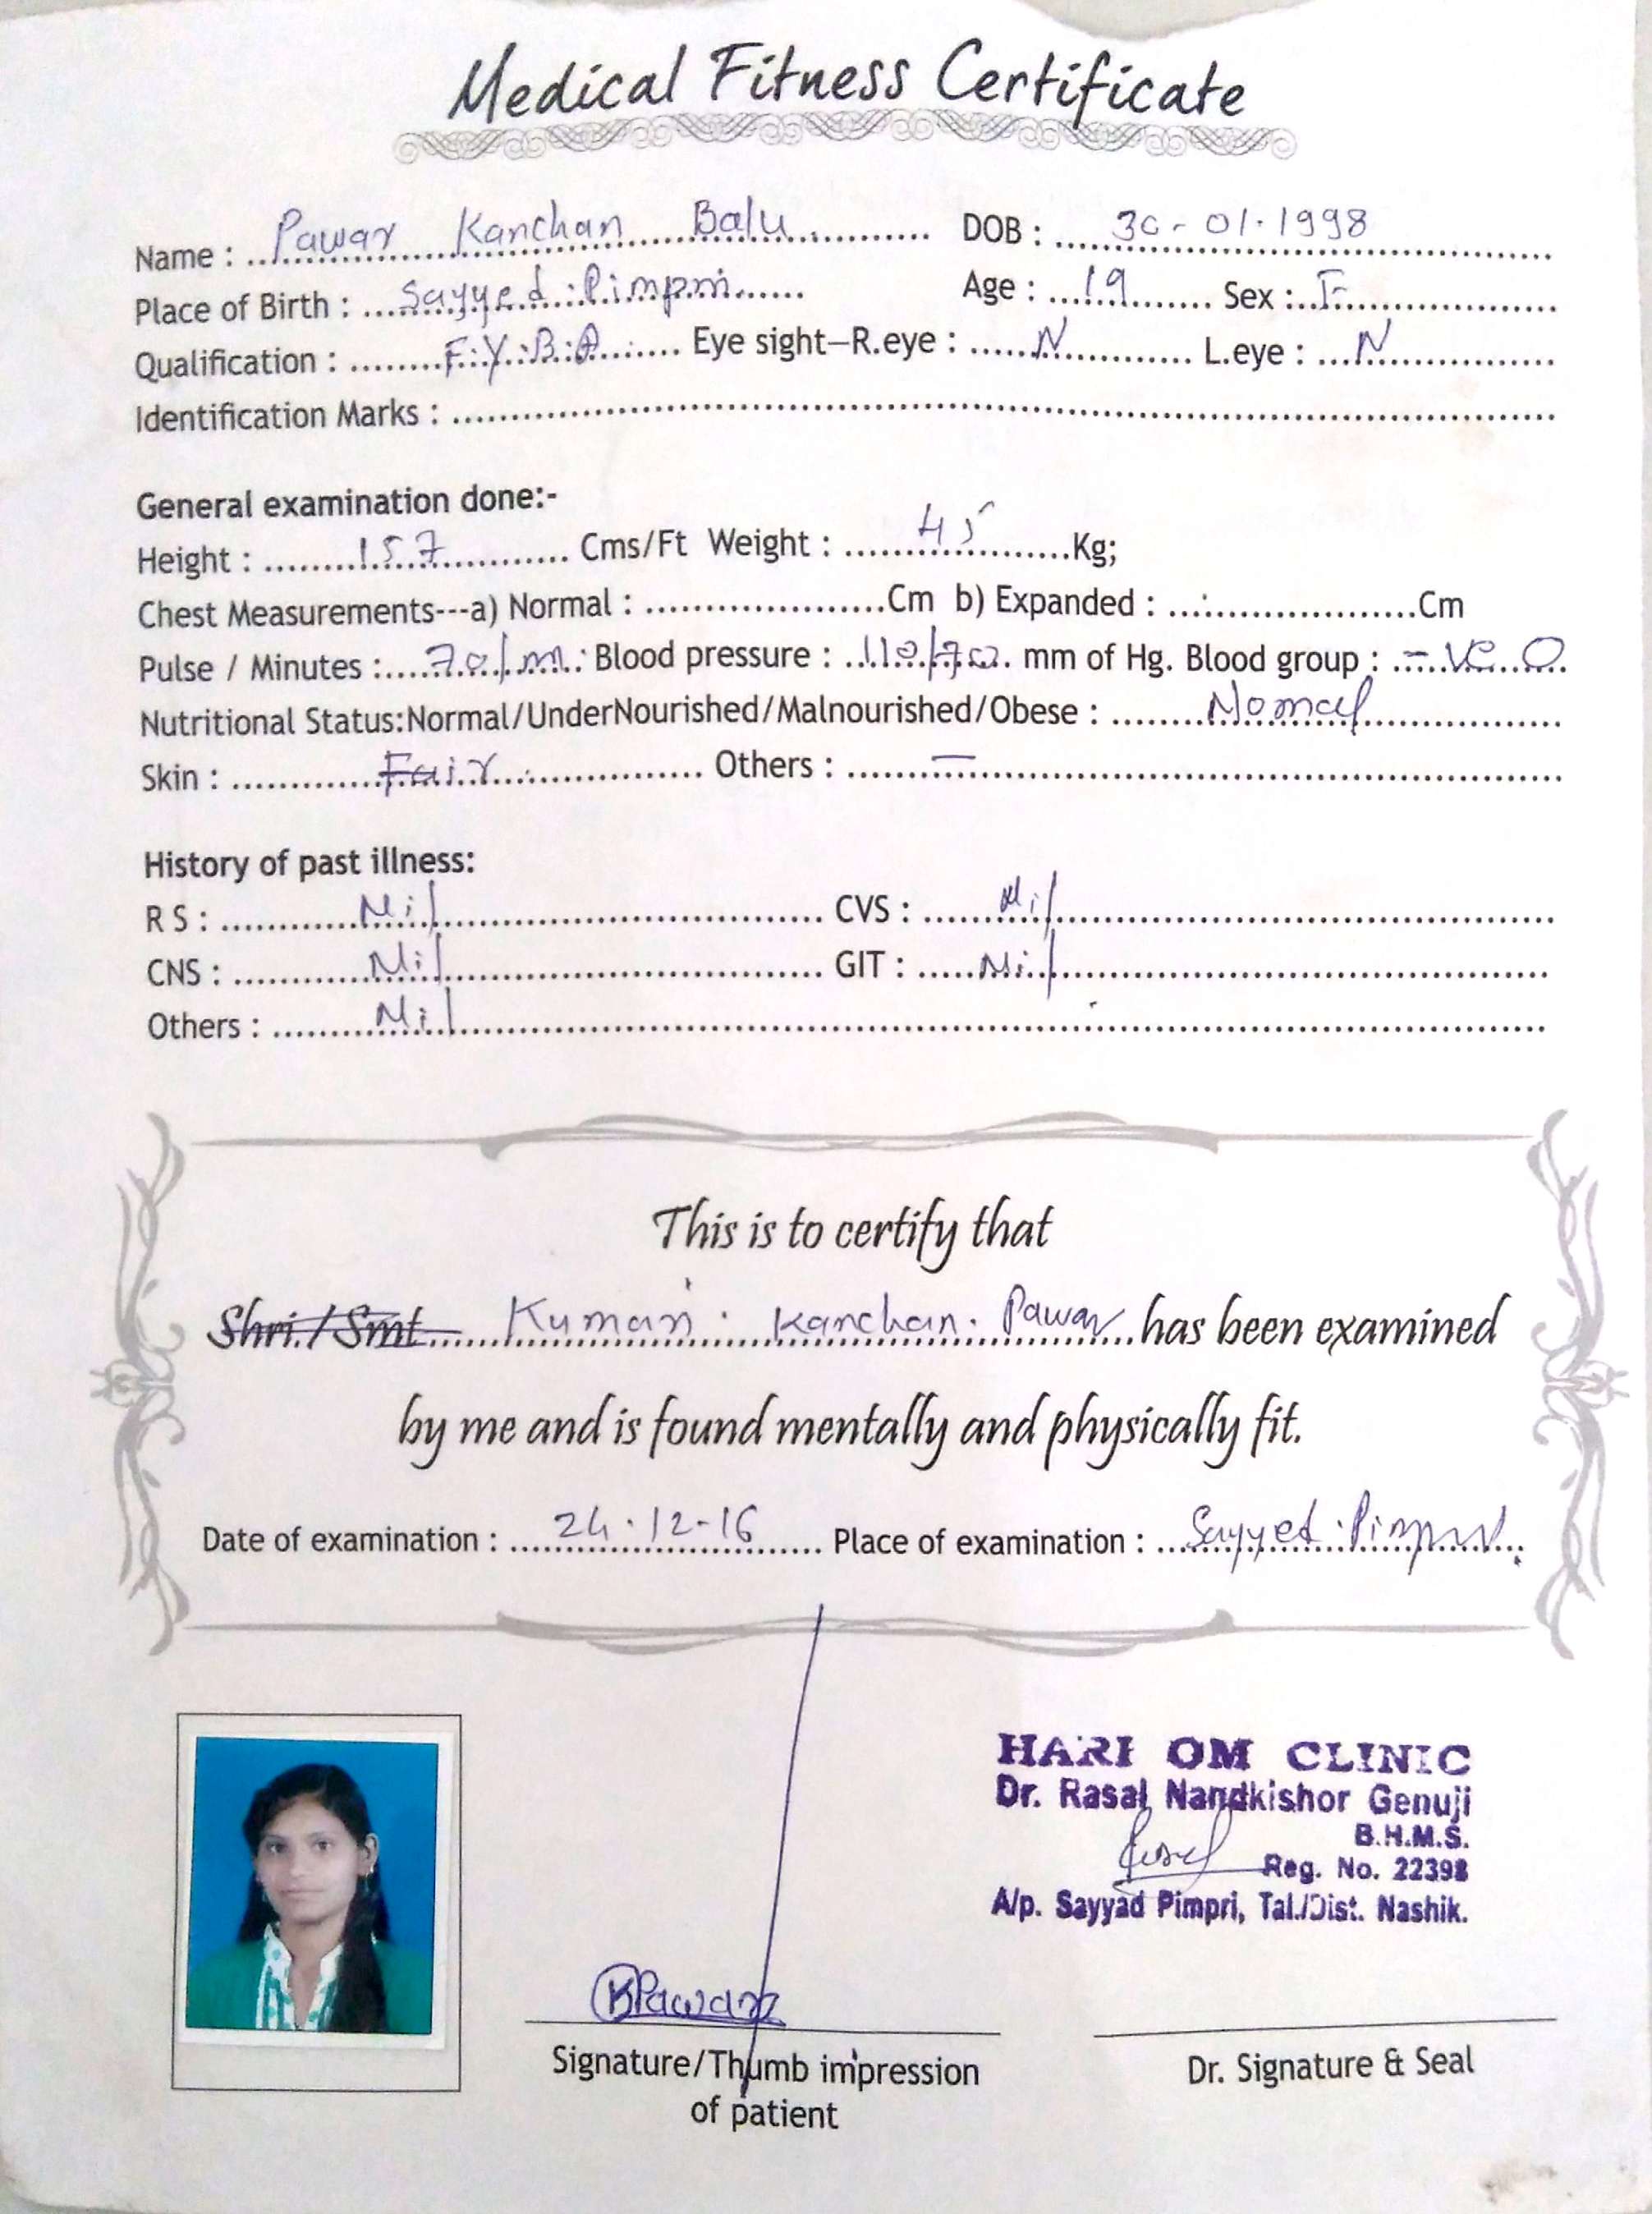 Medical Fitness Certificate
Name : Pawar Kanchan Balu. DOB : 30-01-1998
Place of Birth : Sayyed Pimpri Age : 19 Sex : F
Qualification : F.Y.B.A Eye sight–R.eye : N L.eye : N
Identification Marks :
General examination done:-
Height : 157 Cms/Ft Weight : 45 Kg;
Chest Measurements---a) Normal : Cm b) Expanded : Cm
Pulse / Minutes : 70/m Blood pressure : 110/70 mm of Hg. Blood group : -ve O
Nutritional Status:Normal/UnderNourished/Malnourished/Obese : Nomal
Skin : Fair Others : —
History of past illness:
R S : Nil CVS : Nil
CNS : Nil GIT : Nil
Others : Nil
This is to certify that
Shri./Smt. Kumari. Kanchan. Pawar has been examined
by me and is found mentally and physically fit.
Date of examination : 24-12-16 Place of examination : Sayyed Pimpri
HARI OM CLINIC
Dr. Rasal Nandkishor Genuji
B.H.M.S.
Reg. No. 22398
A/p. Sayyad Pimpri, Tal./Dist. Nashik.
KPawar
Signature/Thumb impression
of patient
Dr. Signature & Seal